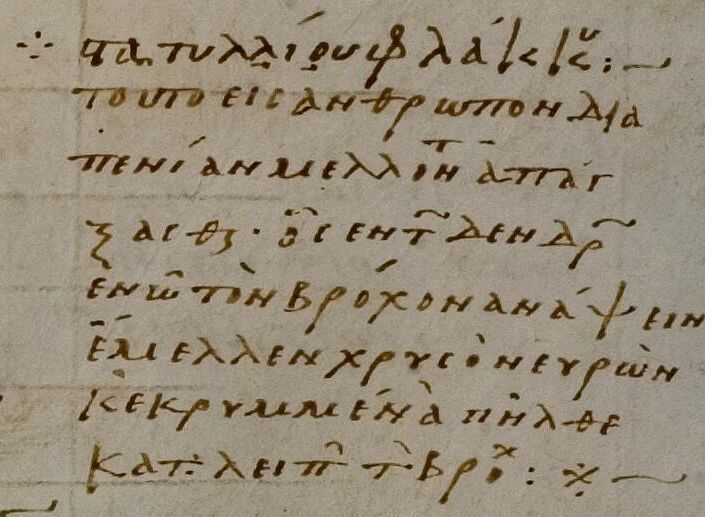 ϛατυλλίου φλάκκ :~
τοῦτο εἰς ἄνθρωπον διὰ
πενίαν μέλλοντ ἀπάγ
ξασθ · ὃς ἐν τ δένδρ
ἐν ὧ τὸν βρόχον ἀνάψειν
ἔμελλεν χρυσὸν εὑρὼν
κεκρυμμέν ἀπῆλθε
κατ λειπ τ βρόχ :